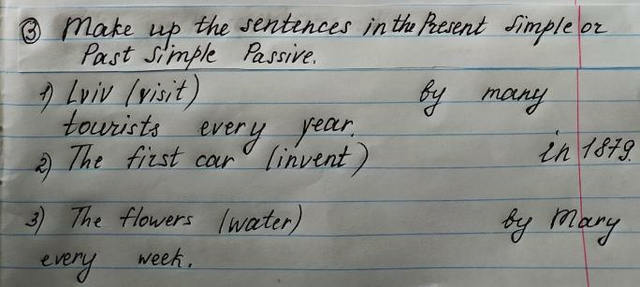 ③ Make up the sentences in the Present Simple or
Past Simple Passive.
1) Lviv (visit) by many
tourists every year.
2) The first car (invent) in 1879.
3) The flowers (water) by Mary
every week.